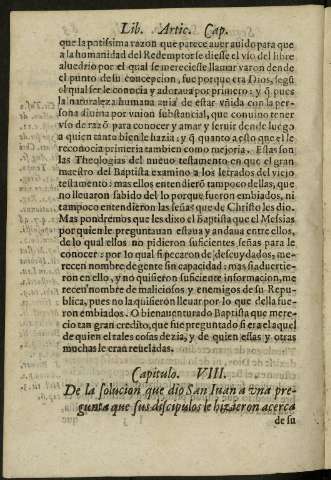 Lib. Artic. Cap.
que la potissima razon que parece auer auido para que a
a la humanidad del Redemptor se diesse el vso del libre
aluedrio por el qual se mereciesse llamar varon dende
el punto de su concepcion, fue porque era Dios, segũ
el qual ser le conocia y adoraua por primero: y q̃ pues
la naturaleza humana auia de estar vñida con la per-
sona diuina por vnion substancial, que conuino tener
vso de razõ para conocer y amar y seruir dende luego
a quien tanto bien le hazia: y q̃ quanto a esto que el le
reconocia primeria tambien como mejoria. Estas son
las Theologias del nueuo testamento en que el gran
maestro del Baptista examino a los letrados del viejo
testamento: mas ellos entendierõ tampoco dellas, que
no lleuaron sabido del lo porque fueron embiados, ni
tampoco entendieron las señas que de Christo les dio.
Mas pondremos que les dixo el Baptista que el Messias
por quien le preguntauan estaua y andaua entre ellos,
de lo qual ellos no pidieron suficientes señas para le
conocer: por lo qual si pecaron de descuydados, me-
recen nombre de gente sin capacidad: mas si aduertie-
ron en ello, y no quisieron suficiente informacion, me
recen nombre de maliciosos y enemigos de su Repu-
blica, pues no la quisieron lleuar por lo que della fue-
ron embiados. O bienauenturado Baptista que mere-
cio tan gran credito, que fue preguntado si era el aquel
de quien el tales cosas dezia, y de quien essas y otras
muchas le eran reueladas.
Capitulo. VIII.
De la solucion que dio San Iuan a vna pre-
gunta que sus discipulos le hizieron acerca
de su